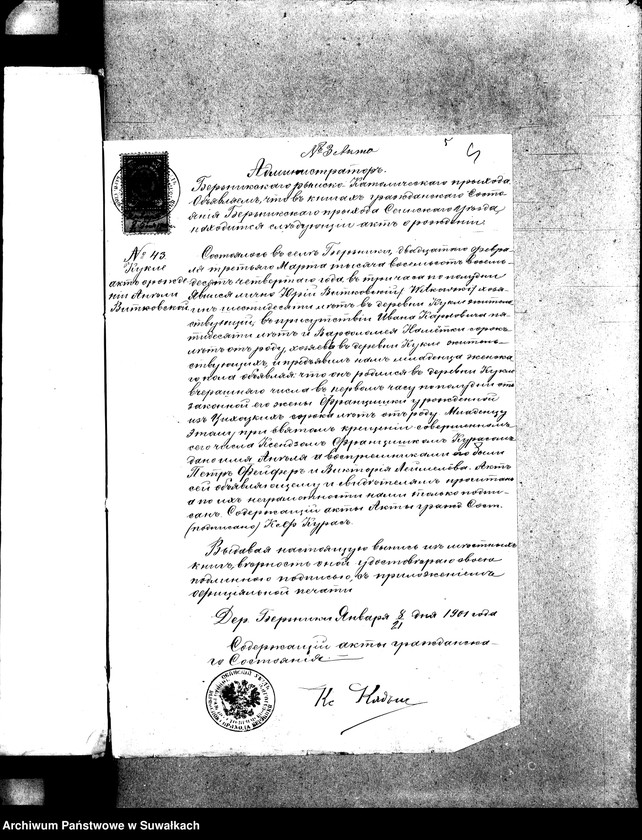 № 3 Акта
5
Администраторъ
Бержникскаго римско Католическаго прихода
Объявляемъ, что въ книгахъ гражданскаго Состо-
янія Бержникскаго прихода Сейнскаго уѣзда,
находится слѣдующій актъ о рожденіи
№ 43.
Кукле
актъ о рожде-
ніи Анголи
Витковской
Состоялось въ селѣ Бержники, двадцатаго февра-
ля третьяго Марта тысяча восемьсотъ восемь-
десятъ четвертаго года, въ три часа по полудни
Явился лично Юрій Витковскій / Witkowski / хозя-
инъ шестидесяти лѣтъ въ деревни Кукле житель-
ствующій, въ присутствіи Ивана Карловича пя-
тидесяти лѣтъ и Варфоломея Калетки сорокъ
лѣтъ отъ роду, хозяевъ въ деревни Кукле житель-
ствующихъ, и предъявилъ намъ младенца женска-
го пола объявляя что онъ родился въ деревни Кукле
вчерашняго числа въ первомъ часу по полудни отъ
законной его жены Францишки урожденной
изъ сорока лѣтъ отъ роду. Младенцу
этому при святомъ крещеніи совершенномъ
сего числа Ксендзомъ Францишкомъ Курасомъ
дано имя Ангеля а воспріемниками его были
Петръ Фейферъ и Викторія. Актъ
сей объявляющему и свидѣтелямъ прочитанъ
а по ихъ неграмотности нами только подпи-
санъ. Содержащій акты Акты гражд Сост.
(подписано) Кс Ф Курасъ.
Выдавая настоящую выпись изъ мѣстныхъ
книгъ, вѣрность оной удостовѣряю своею
подлинною подписью, съ приложеніемъ
официальной печати
Дер. Бержники Января 8/21 дня 1901 года
Содержащій акты гражданска-
го Состоянія
Кс
Archiwum Państwowe w Suwałkach